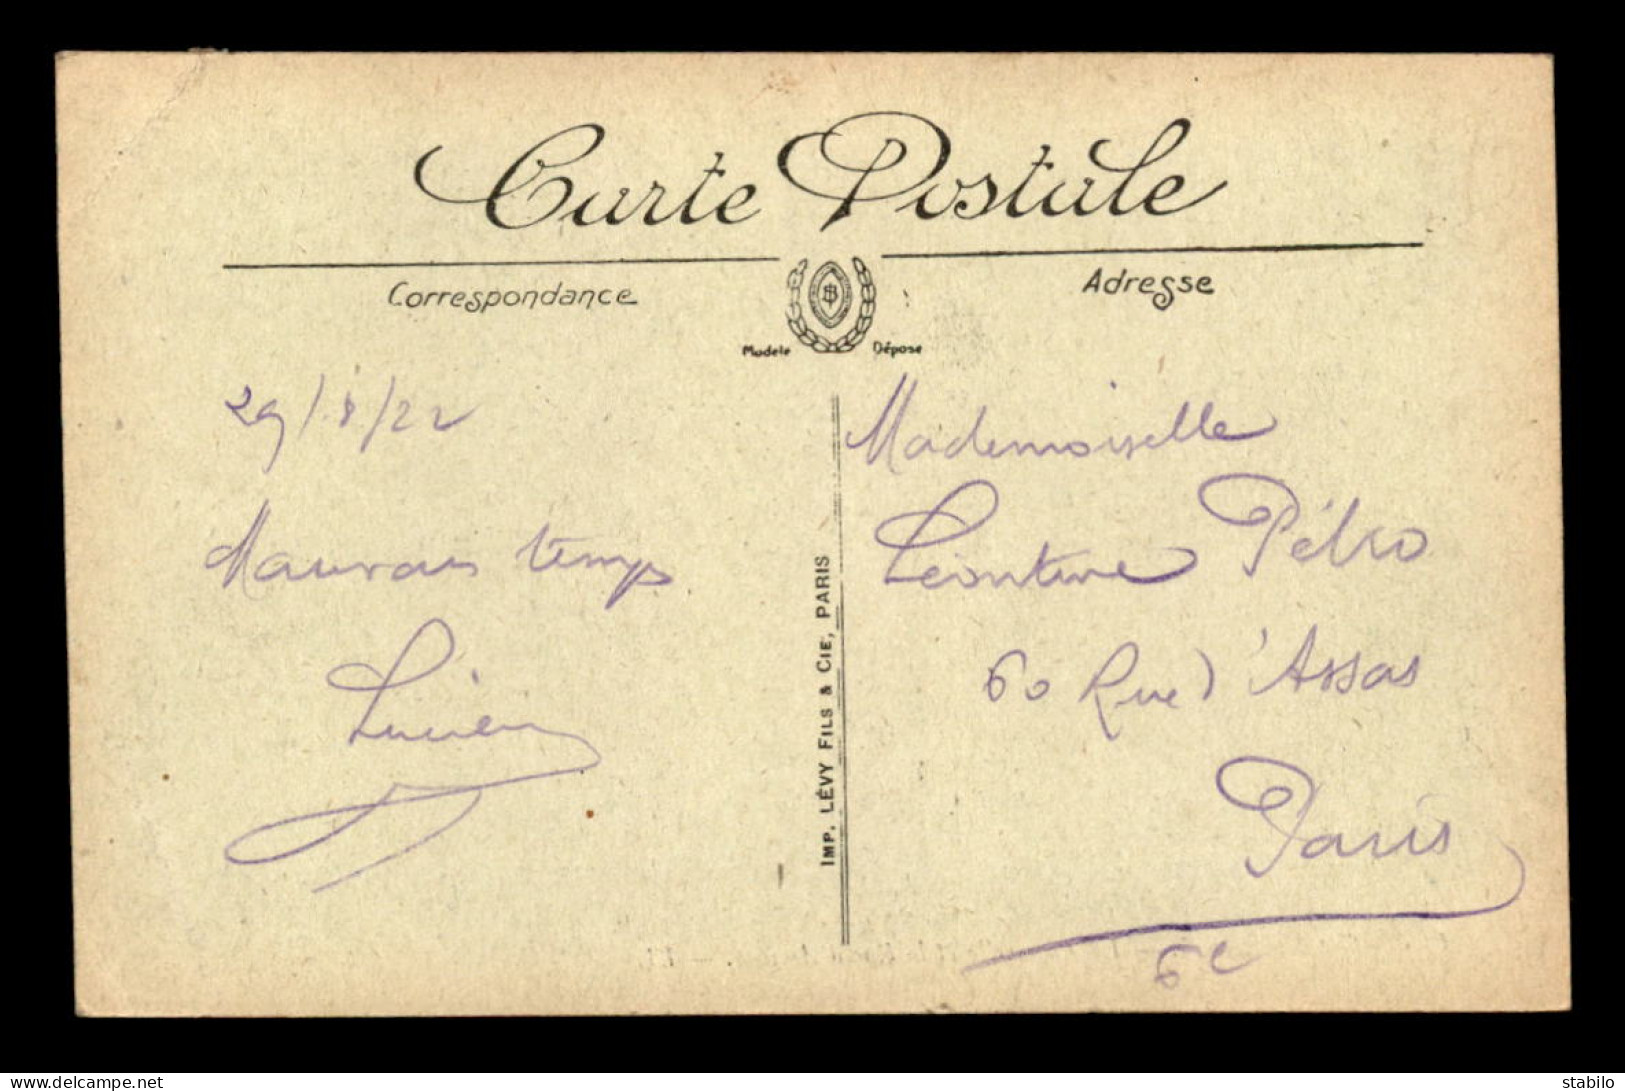 Carte Postale
Correspondance
Adresse
Modele Déposé
29/8/22
Mauvais temps
Lucien
IMP. LÉVY FILS & CIE, PARIS
Mademoiselle
Léontine Pétro
60 Rue d'Assas
Paris
6e
delcampe.net
stabilo